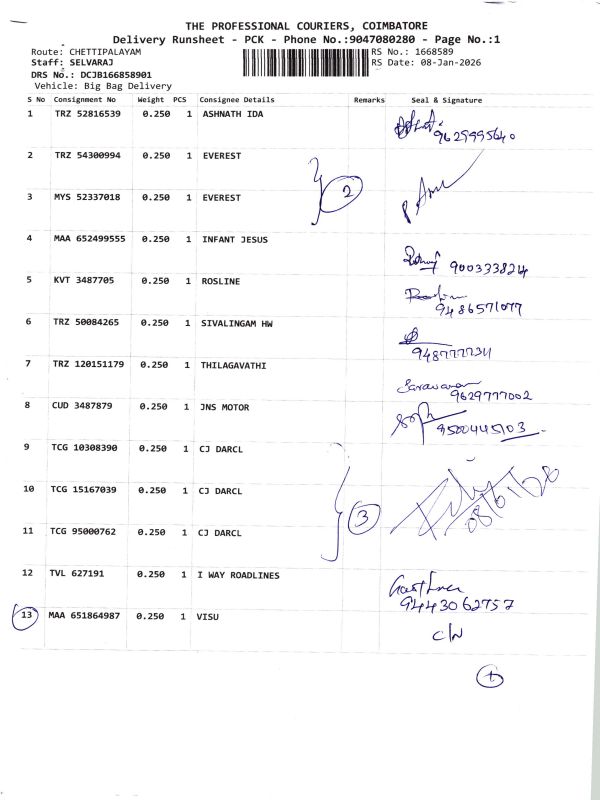 THE PROFESSIONAL COURIERS, COIMBATORE
Delivery Runsheet - PCK - Phone No.:9047080280 - Page No.:1
Route: CHETTIPALAYAM RS No.: 1668589
Staff: SELVARAJ RS Date: 08-Jan-2026
DRS No.: DCJB166858901
Vehicle: Big Bag Delivery
S No Consignment No Weight PCS Consignee Details Remarks Seal & Signature
1 TRZ 52816539 0.250 1 ASHNATH IDA
9629995640
2 TRZ 54300994 0.250 1 EVEREST
2
3 MYS 52337018 0.250 1 EVEREST
4 MAA 652499555 0.250 1 INFANT JESUS
900333824
5 KVT 3487705 0.250 1 ROSLINE
9486571077
6 TRZ 50084265 0.250 1 SIVALINGAM HW
7 TRZ 120151179 0.250 1 THILAGAVATHI
Saravanan
9629777002
8 CUD 3487879 0.250 1 JNS MOTOR
9500445103
9 TCG 10308390 0.250 1 CJ DARCL
10 TCG 15167039 0.250 1 CJ DARCL
3
11 TCG 95000762 0.250 1 CJ DARCL
12 TVL 627191 0.250 1 I WAY ROADLINES
9443062757
13 MAA 651864987 0.250 1 VISU